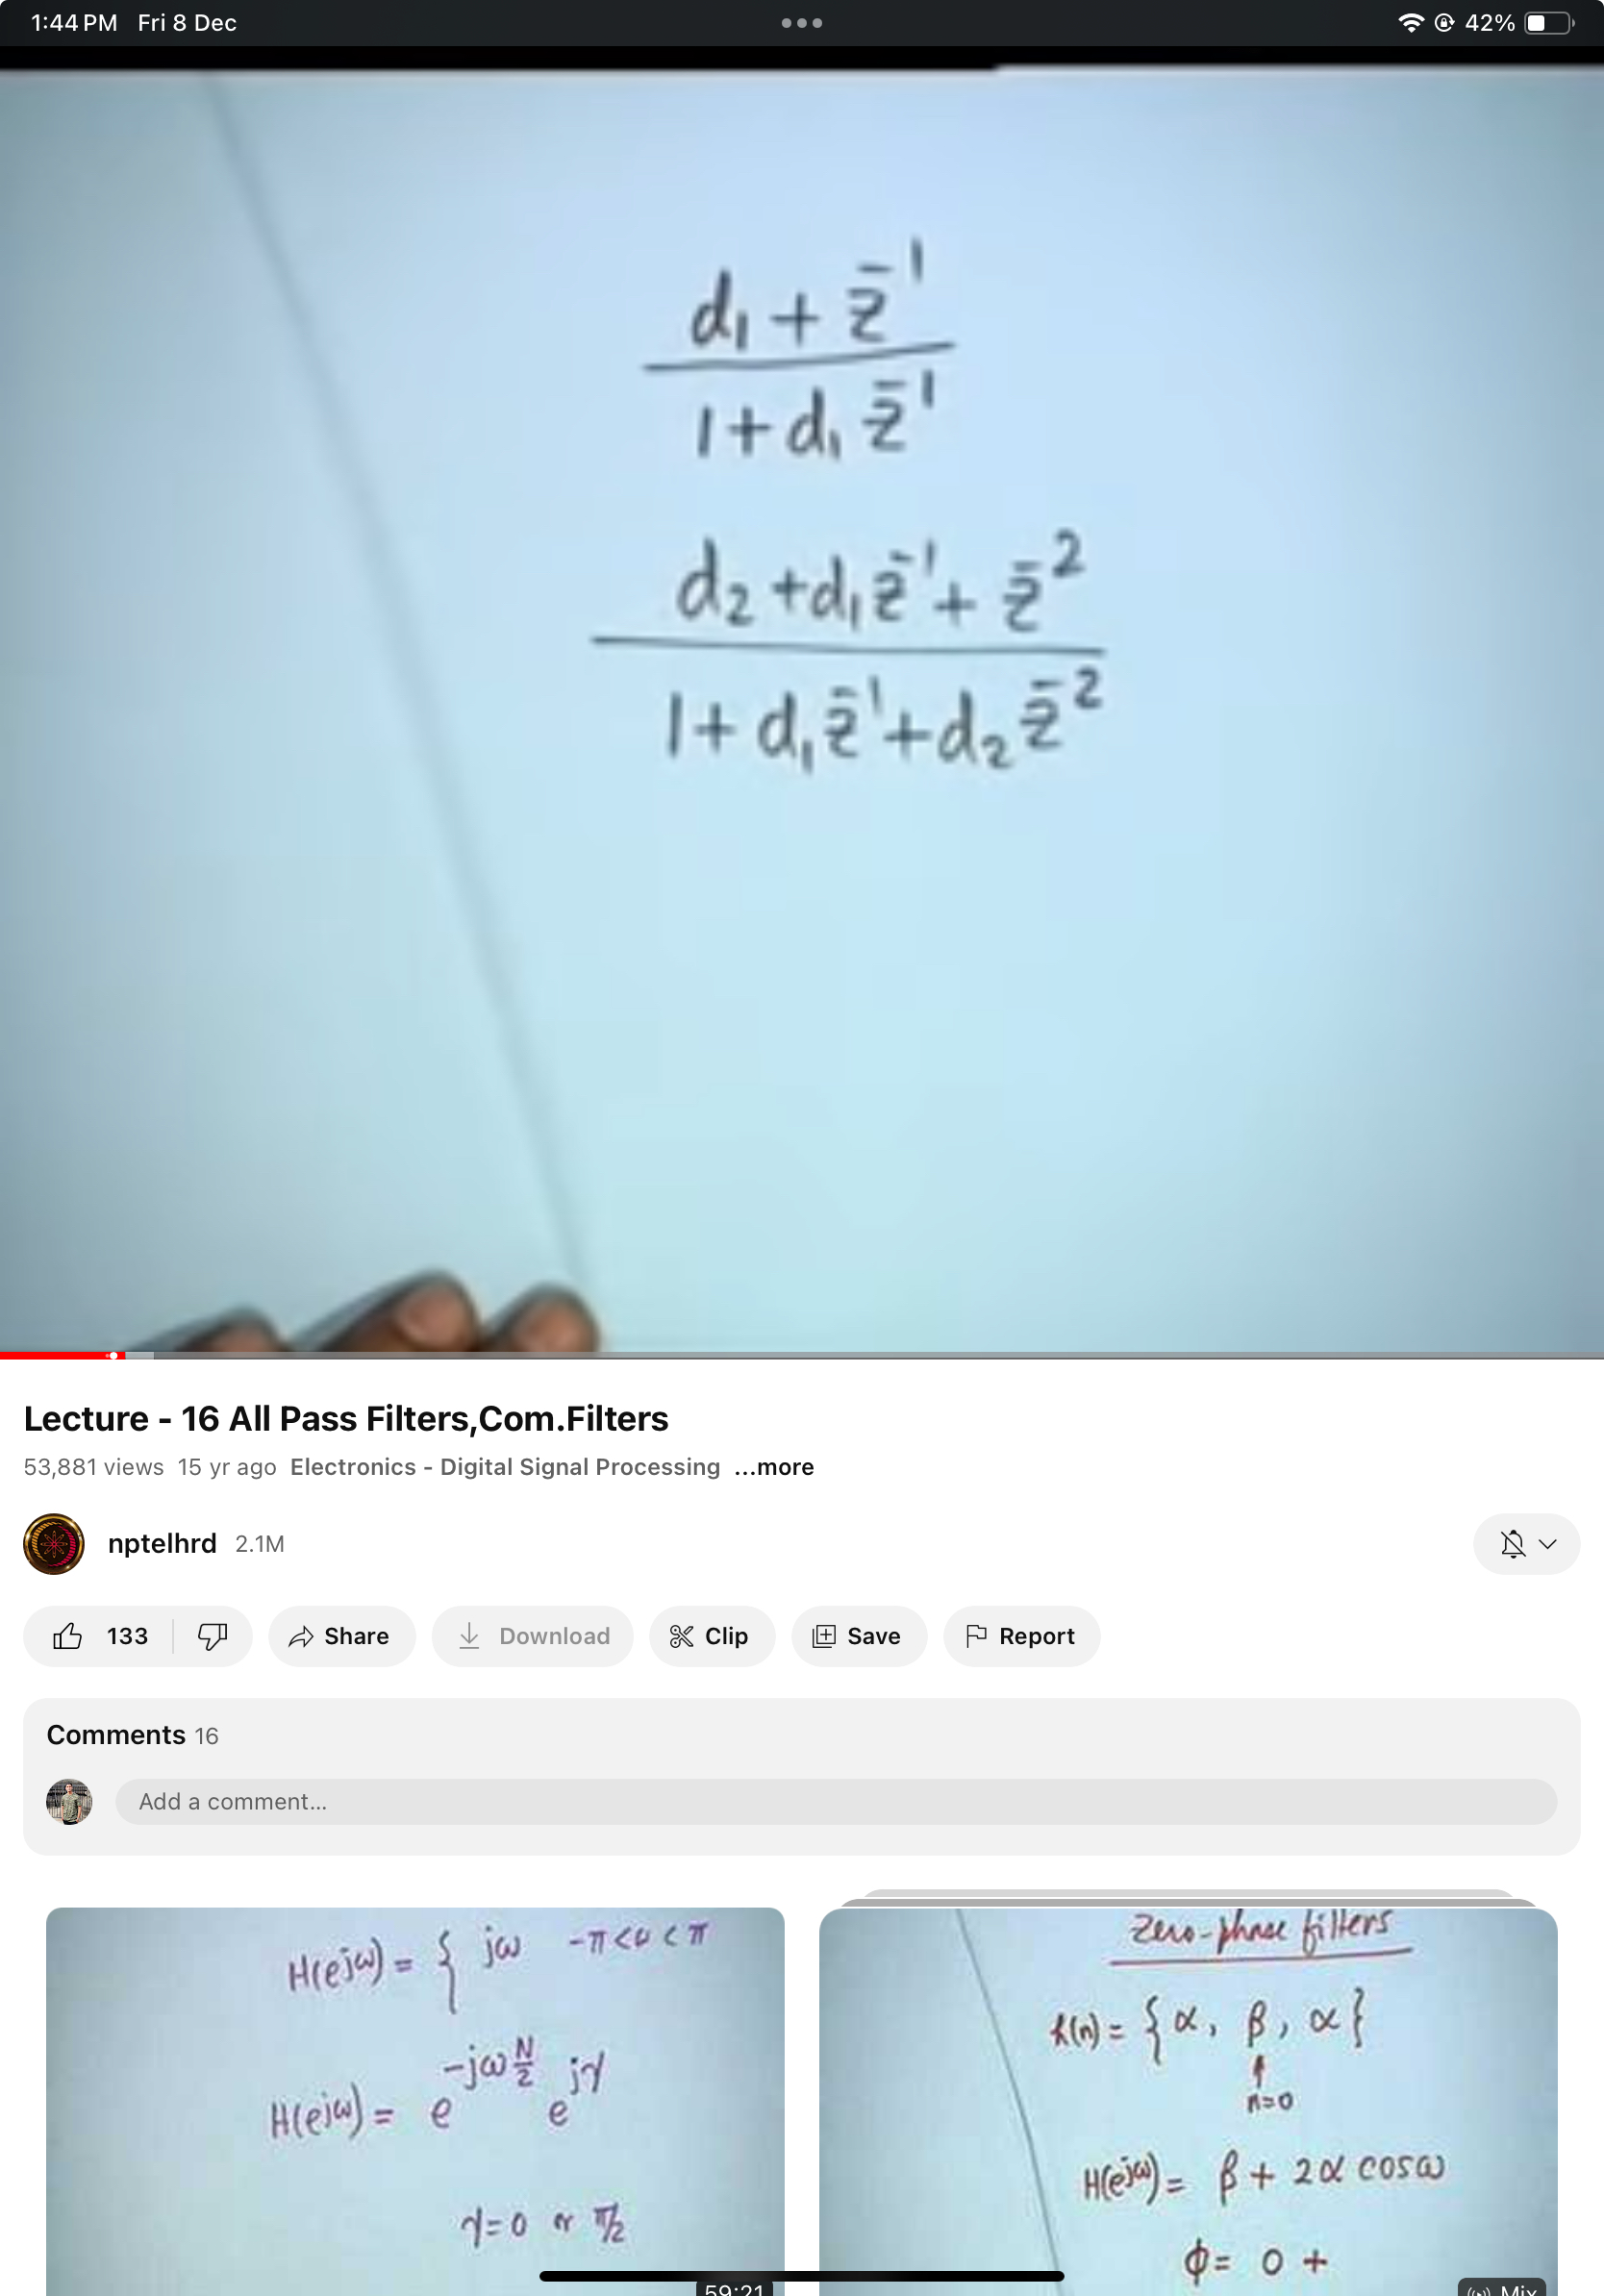 1:44 PM Fri 8 Dec 42%
d₁ + z̄¹
1 + d₁ z̄¹
d₂ + d₁ z̄¹ + z̄²
1 + d₁ z̄¹ + d₂ z̄²
Lecture - 16 All Pass Filters,Com.Filters
53,881 views 15 yr ago Electronics - Digital Signal Processing ...more
nptelhrd 2.1M
133 Share Download Clip Save Report
Comments 16
Add a comment...
H(e^jω) = { jω -π<ω<π
H(e^jω) = e^(-jω N/2) e^jγ
γ=0 or π/2
59:21
Zero-phase filters
h(n) = {α, β, α}
n=0
H(e^jω) = β + 2α cosω
ϕ = 0 +
Mix